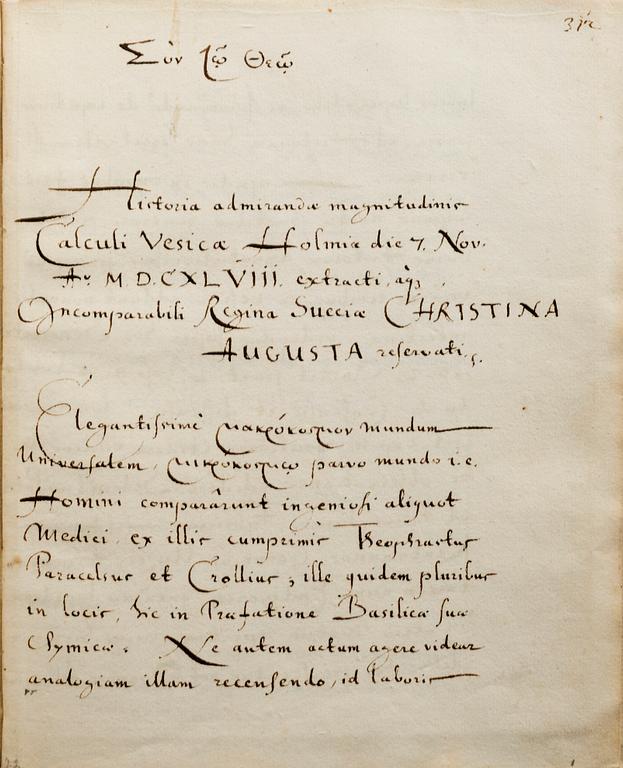 Σύν τῷ Θεῷ
Historia admirandæ magnitudinis
Calculi Vesicæ Holmiæ die 7. Nov.
Aº M.D.CXLVIII. extracti, atq;
Incomparabili Reginæ Sueciæ CHRISTINA
AUGUSTA reservati.
Elegantissimè μακρόκοσμον mundum
Universalem, μικρόκοσμῳ parvo mundo i.e.
Homini comparârunt ingeniosi aliquot
Medici, ex illis cumprimis Theophrastus
Paracelsus et Crollius; ille quidem pluribus
in locis, hic in Præfatione Basilicæ suæ
Chymicæ. Ne autem actum agere videar
analogiam illam recensendo, id laboris